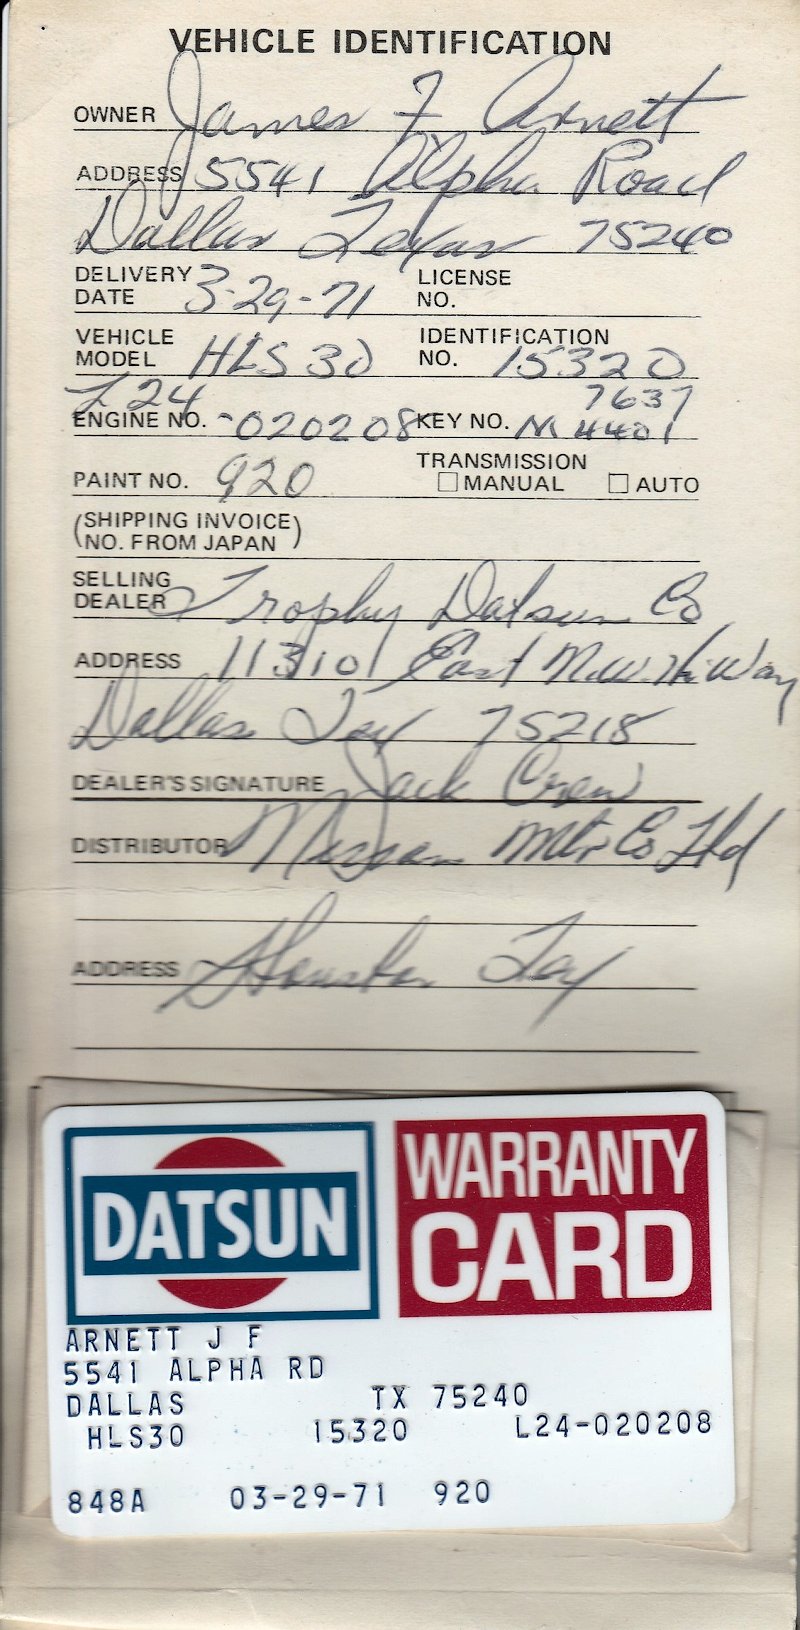 VEHICLE IDENTIFICATION
OWNER James F Arnett
ADDRESS 5541 Alpha Road
Dallas Texas 75240
DELIVERY DATE 3-29-71 LICENSE NO.
VEHICLE MODEL HLS 30 IDENTIFICATION NO. 15320
L24 7637
ENGINE NO. -020208 KEY NO. M 4401
PAINT NO. 920 TRANSMISSION ☐ MANUAL ☐ AUTO
(SHIPPING INVOICE NO. FROM JAPAN)
SELLING DEALER Trophy Datsun Co
ADDRESS 11310 East N.W. HiWay
Dallas Tex 75218
DEALER'S SIGNATURE Jack Crew
DISTRIBUTOR Nissan Mtr Co Ltd
ADDRESS Houston Tex
DATSUN
WARRANTY
CARD
ARNETT J F
5541 ALPHA RD
DALLAS TX 75240
HLS30 15320 L24-020208
848A 03-29-71 920